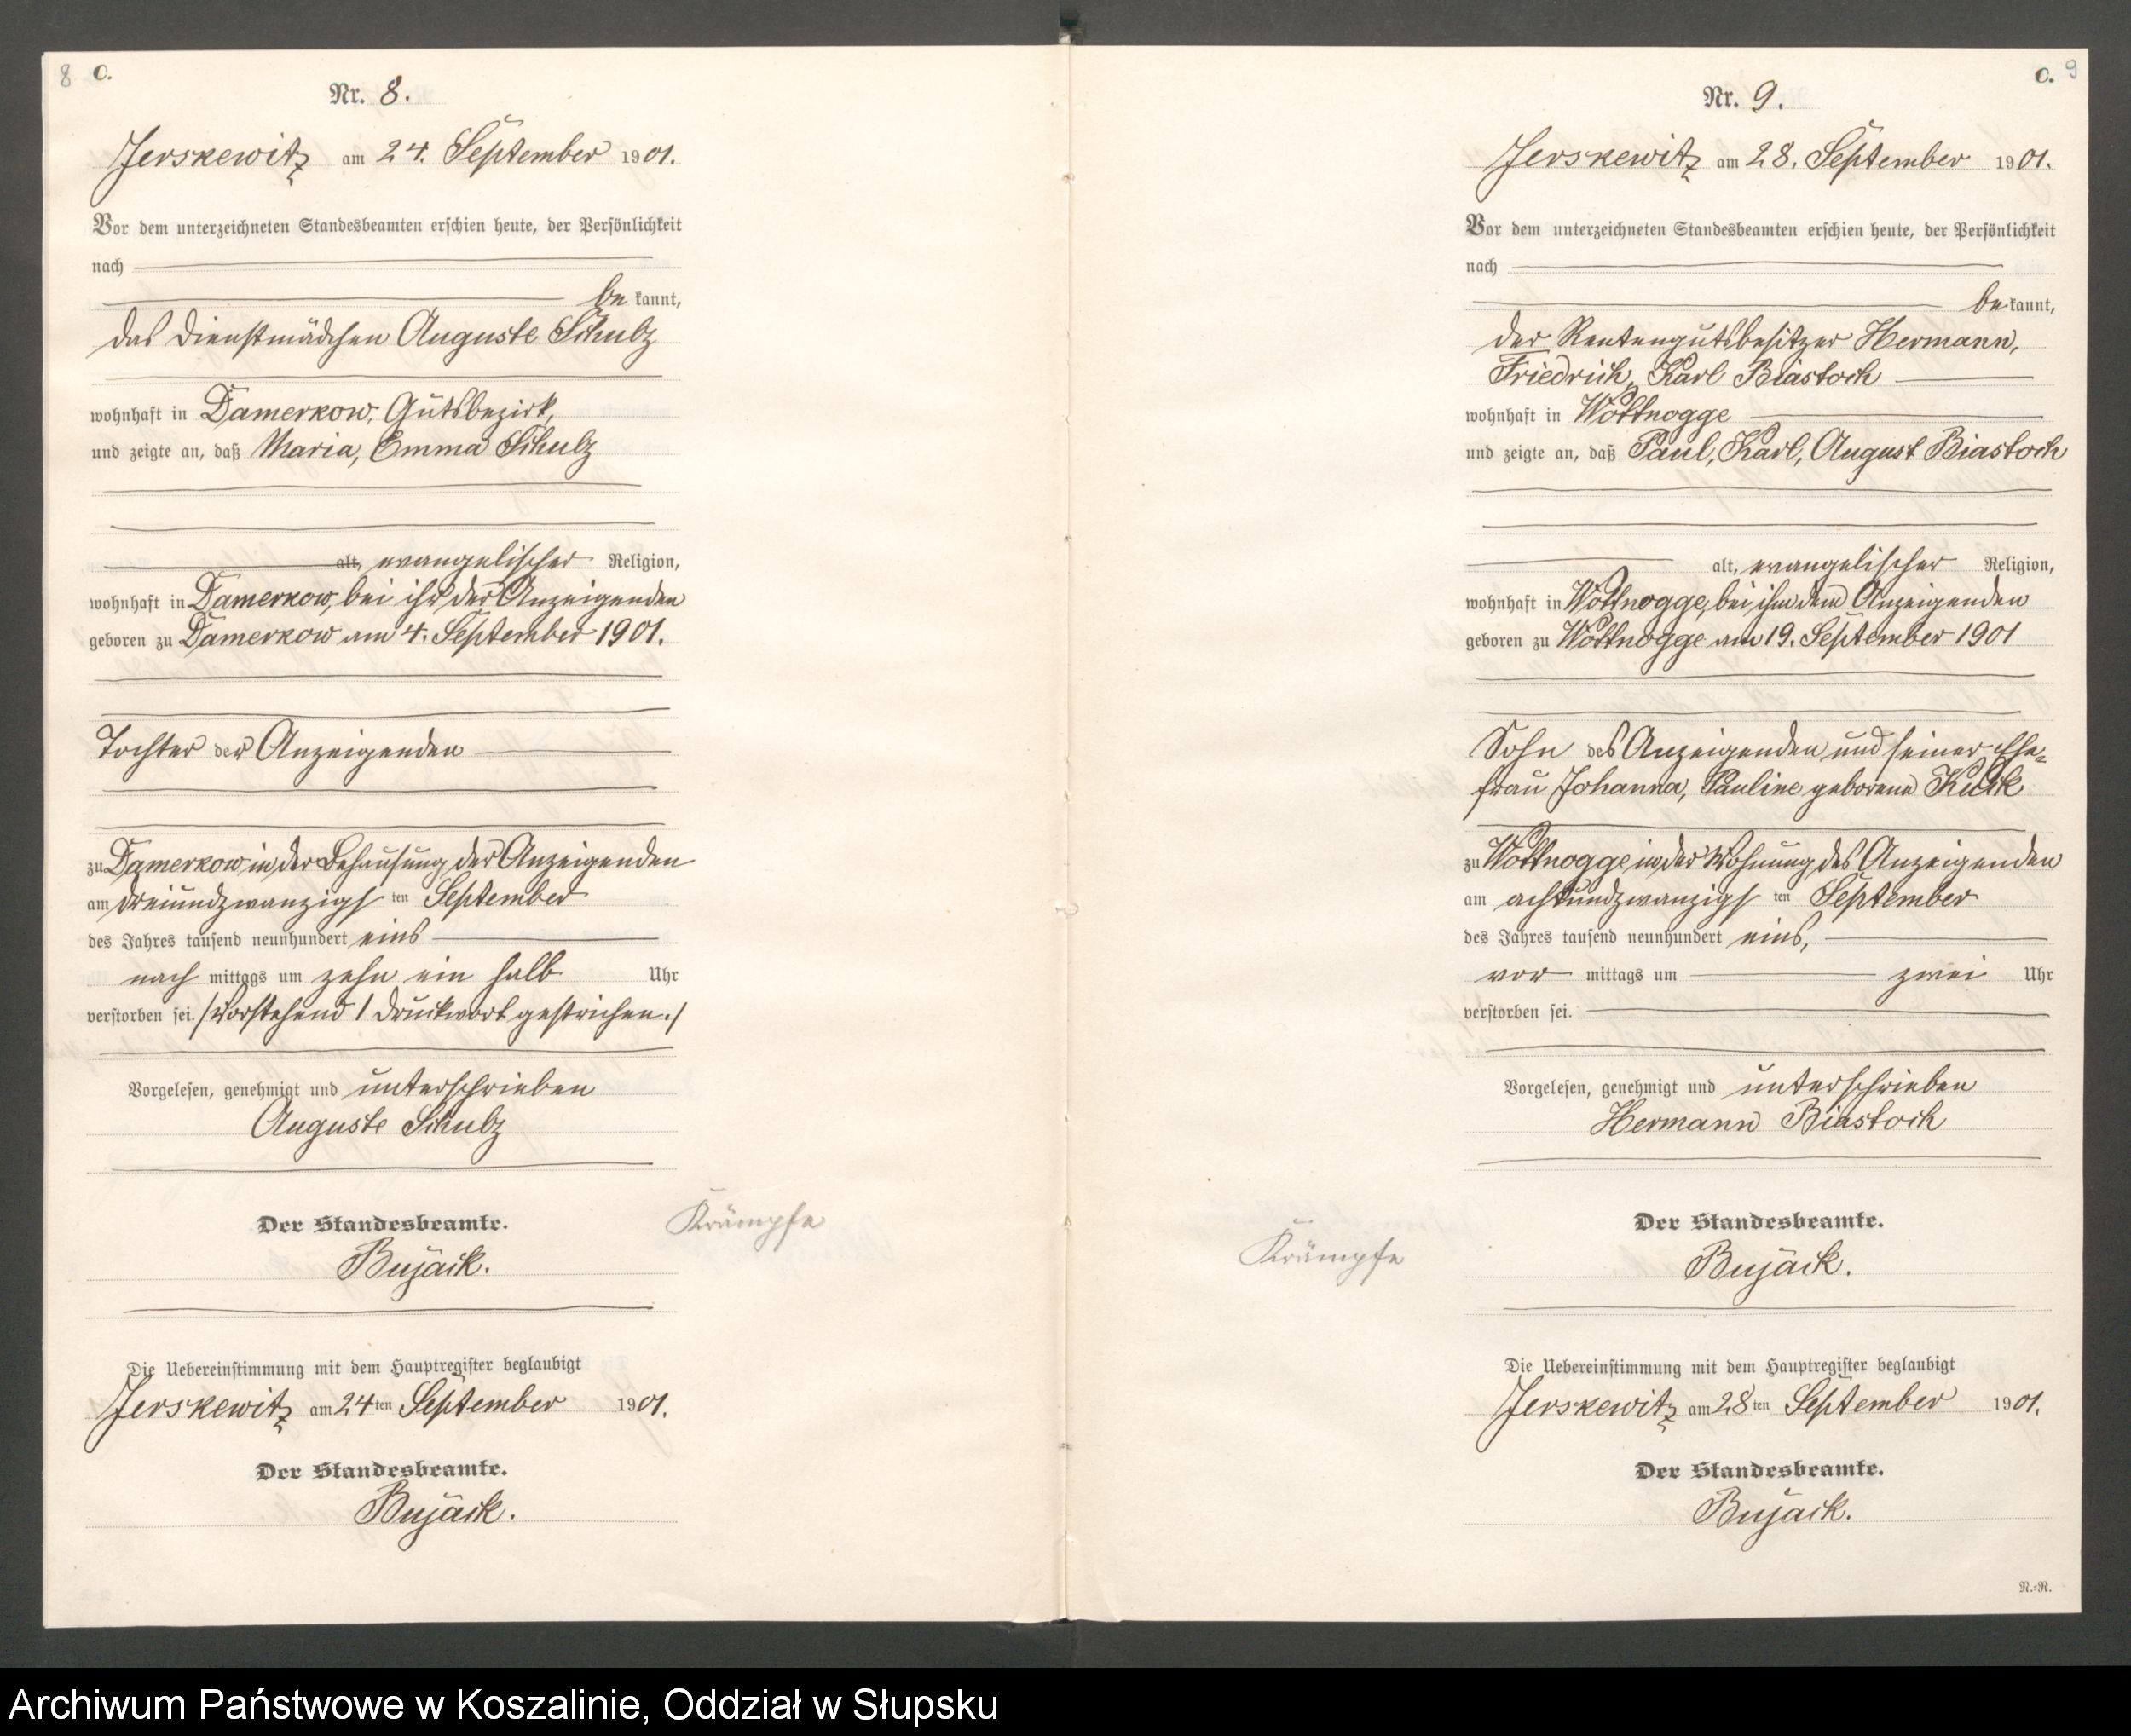 8 C.
Nr. 8.
Jerskewitz am 24. September 1901.
Vor dem unterzeichneten Standesbeamten erschien heute, der Persönlichkeit
nach
be kannt,
das Dienstmädchen Auguste Schulz
wohnhaft in Damerkow, Gutsbezirk,
und zeigte an, daß Maria, Emma Schulz
alt, evangelischer Religion,
wohnhaft in Damerkow, bei ihr der Anzeigenden
geboren zu Damerkow am 4. September 1901.
Tochter der Anzeigenden
zu Damerkow in der Behausung der Anzeigenden
am dreiundzwanzigsten September
des Jahres tausend neunhundert eins
nach mittags um zehn ein halb Uhr
verstorben sei. /Vorstehend 1 Druckwort gestrichen./
Vorgelesen, genehmigt und unterschrieben
Auguste Schulz
Der Standesbeamte.
Krämpfe
Bujack.
Die Uebereinstimmung mit dem Hauptregister beglaubigt
Jerskewitz am 24ten September 1901.
Der Standesbeamte.
Bujack.
C. 9
Nr. 9.
Jerskewitz am 28. September 1901.
Vor dem unterzeichneten Standesbeamten erschien heute, der Persönlichkeit
nach
be kannt,
der Rentengutsbesitzer Hermann,
Friedrich, Karl Biastoch
wohnhaft in Wottnogge
und zeigte an, daß Paul, Karl, August Biastoch
alt, evangelischer Religion,
wohnhaft in Wottnogge, bei ihm dem Anzeigenden
geboren zu Wottnogge am 19. September 1901
Sohn des Anzeigenden und seiner Ehe-
frau Johanna, Pauline geborene
zu Wottnogge in der Wohnung des Anzeigenden
am achtundzwanzigsten September
des Jahres tausend neunhundert eins,
vor mittags um zwei Uhr
verstorben sei.
Vorgelesen, genehmigt und unterschrieben
Hermann Biastoch
Der Standesbeamte.
Krämpfe
Bujack.
Die Uebereinstimmung mit dem Hauptregister beglaubigt
Jerskewitz am 28ten September 1901.
Der Standesbeamte.
Bujack.
N.-N.
Archiwum Państwowe w Koszalinie, Oddział w Słupsku